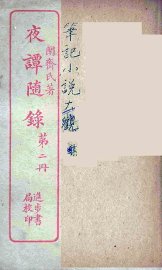 閒齋氏著
夜譚隨錄
第二冊
進步書局校印
筆記小説大觀